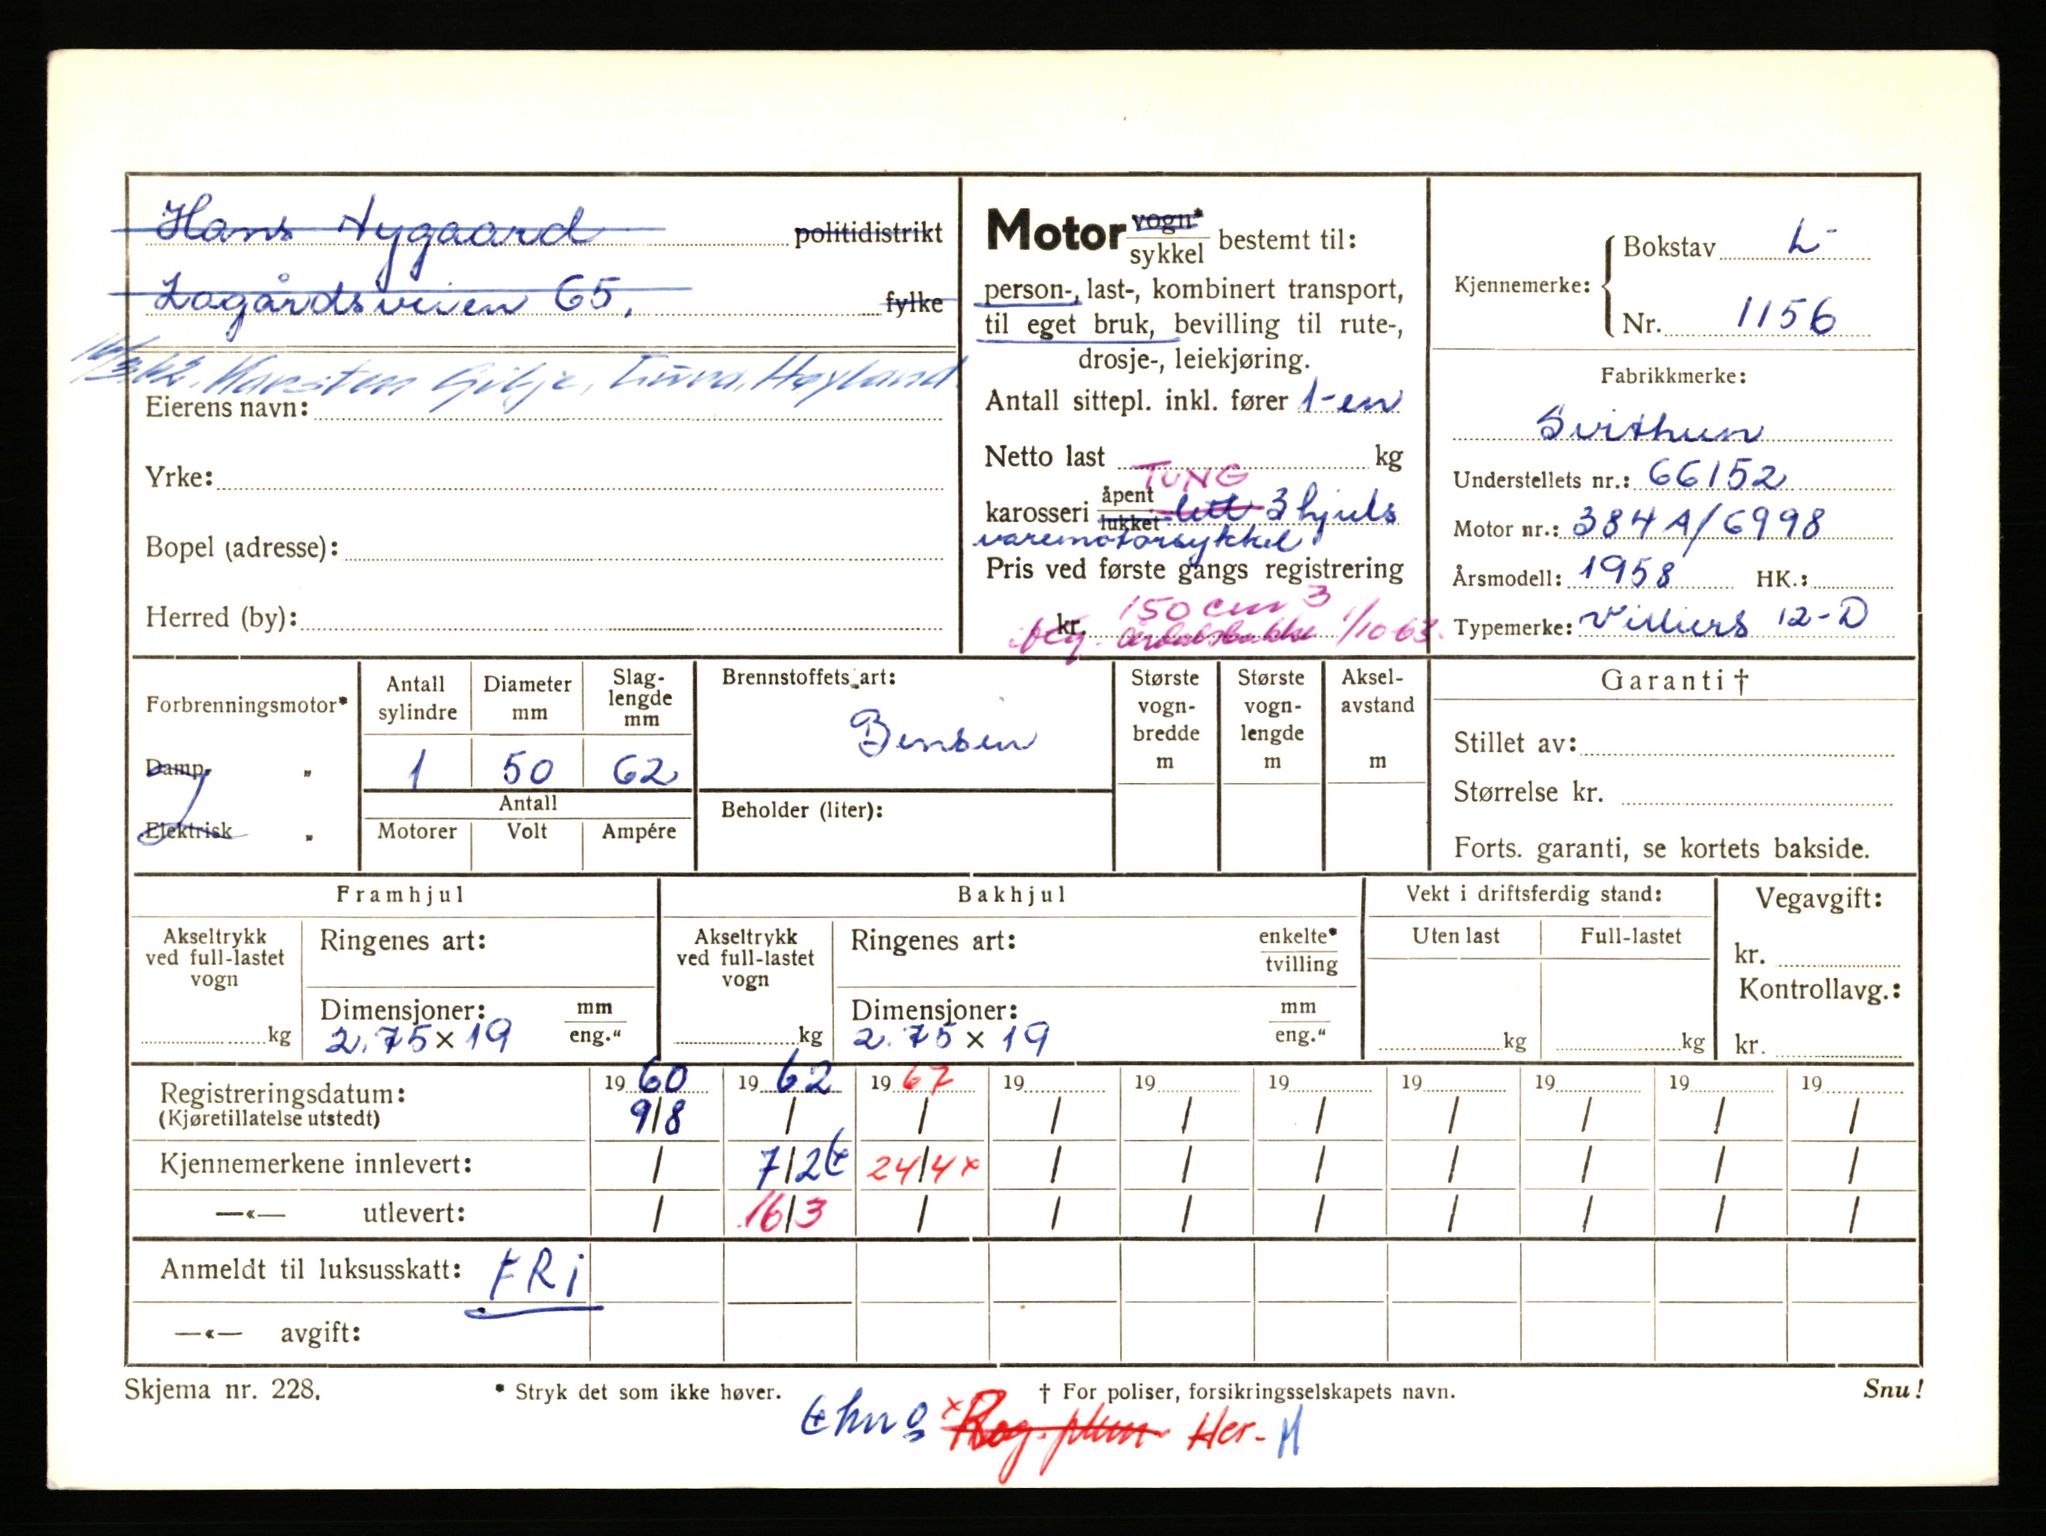 Hans Nygaard politidistrikt
Lagårdsveien 65, fylke
16/3.62. Karsten Gilje, Høyland
Eierens navn:
Yrke:
Bopel (adresse):
Herred (by):
Motor vogn* sykkel bestemt til:
person-, last-, kombinert transport,
til eget bruk, bevilling til rute-,
drosje-, leiekjøring.
Antall sittepl. inkl. fører 1-en
Netto last kg
TUNG
karosseri åpent lukket lett 3 hjuls
varemotorsykkel
Pris ved første gangs registrering
150 cm3
kr. 1/10-63.
Kjennemerke: Bokstav L-
Nr. 1156
Fabrikkmerke:
Svithun
Understellets nr.: 66152
Motor nr.: 384 A/6998
Årsmodell: 1958 HK.:
Typemerke: Villiers 12-D
Forbrenningsmotor*
Damp- „
Elektrisk „
Antall sylindre Diameter mm Slag-lengde mm
1 50 62
Antall
Motorer Volt Ampére
Brennstoffets art:
Bensin
Beholder (liter):
Største vogn-bredde m
Største vogn-lengde m
Aksel-avstand m
Garanti †
Stillet av:
Størrelse kr.
Forts. garanti, se kortets bakside.
Framhjul
Akseltrykk ved full-lastet vogn
kg
Ringenes art:
Dimensjoner: mm
2.75 x 19 eng.“
Bakhjul
Akseltrykk ved full-lastet vogn
kg
Ringenes art: enkelte* tvilling
Dimensjoner: mm
2.75 x 19 eng.“
Vekt i driftsferdig stand:
Uten last Full-lastet
kg kg
Vegavgift:
kr.
Kontrollavg.:
kr.
Registreringsdatum: 19 60 19 62 19 67 19 19 19 19 19 19 19
(Kjøretillatelse utstedt) 9/8 / / / / / / / / /
Kjennemerkene innlevert: / 7/2 24/4 x / / / / / / /
—«— utlevert: / 16/3 / / / / / / / /
Anmeldt til luksusskatt: FRi
—«— avgift:
Skjema nr. 228. * Stryk det som ikke høver. † For poliser, forsikringsselskapets navn. Snu!
x Her-M